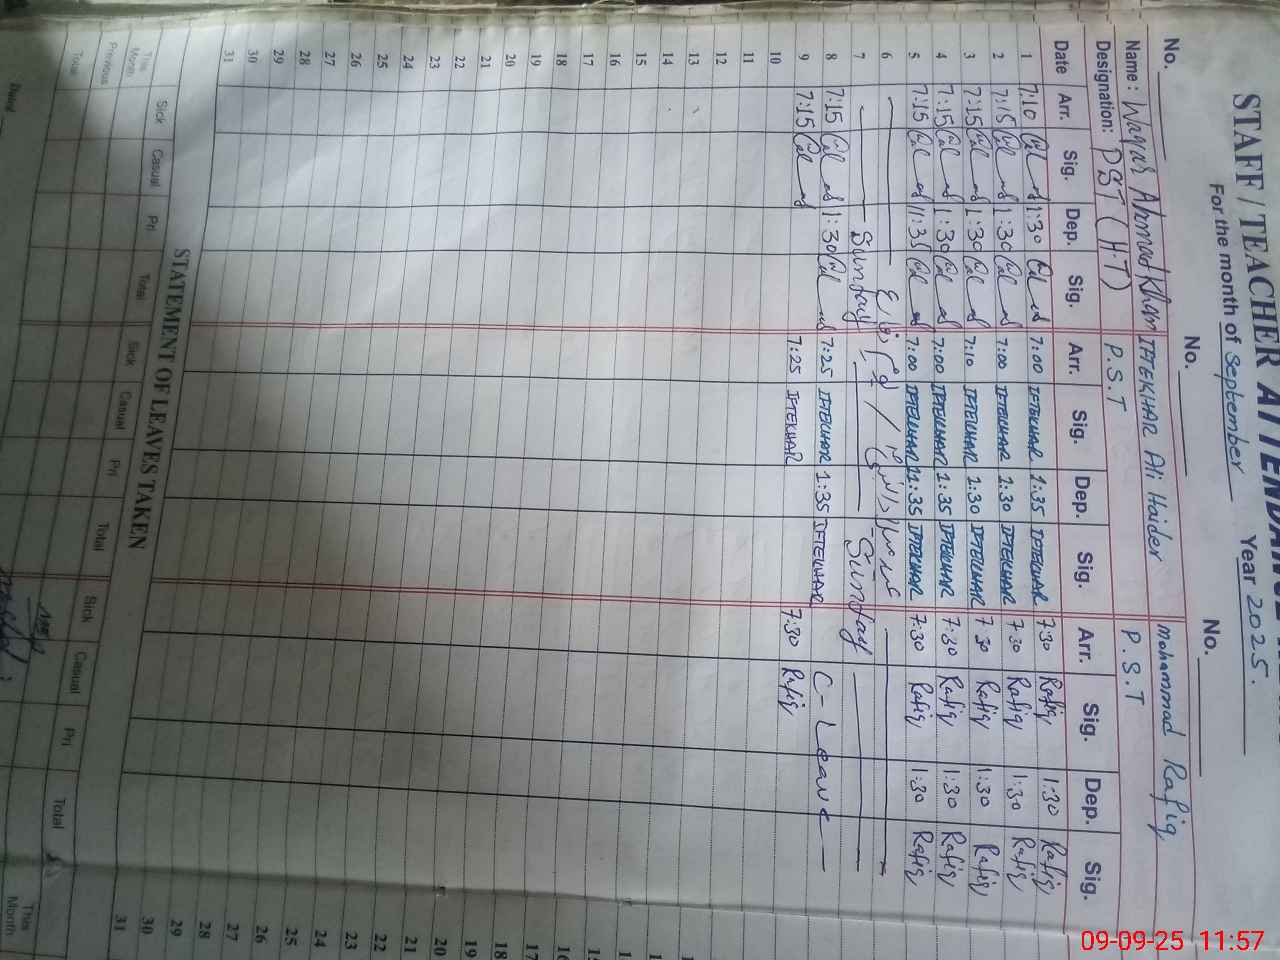 STAFF / TEACHER ATTENDANCE
For the month of September Year 2025.
No. No. No.
Name: Waqar Ahmad Khan IFTEKHAR Ali Haider Mohammad Rafiq
Designation: PST (H.T) P.S.T P.S.T
Date Arr. Sig. Dep. Sig. Arr. Sig. Dep. Sig. Arr. Sig. Dep. Sig.
1 7:10 1:30 7:00 IFTEKHAR 1:35 IFTEKHAR 7:30 Rafiq 1:30 Rafiq
2 7:15 1:30 7:00 IFTEKHAR 1:30 IFTEKHAR 7:30 Rafiq 1:30 Rafiq
3 7:15 1:30 7:10 IFTEKHAR 1:30 IFTEKHAR 7:30 Rafiq 1:30 Rafiq
4 7:15 1:30 7:00 IFTEKHAR 1:35 IFTEKHAR 7:30 Rafiq 1:30 Rafiq
5 7:15 11:35 7:00 IFTEKHAR 11:35 IFTEKHAR 7:30 Rafiq 1:30 Rafiq
6
7 Sunday Sunday
8 7:15 1:30 7:25 IFTEKHAR 1:35 IFTEKHAR C- Leave
9 7:15 7:25 IFTEKHAR 7:30 Rafiq
10
11
12
13
14
15
16
17
18
19
20
21
22
23
24
25
26
27
28
29
30
31
STATEMENT OF LEAVES TAKEN
Sick Casual Pri Total Sick Casual Pri Total Sick Casual Pri Total
This Month
Previous
Total
This Month
16
17
18
19
20
21
22
23
24
25
26
27
28
29
30
31
09-09-25 11:57